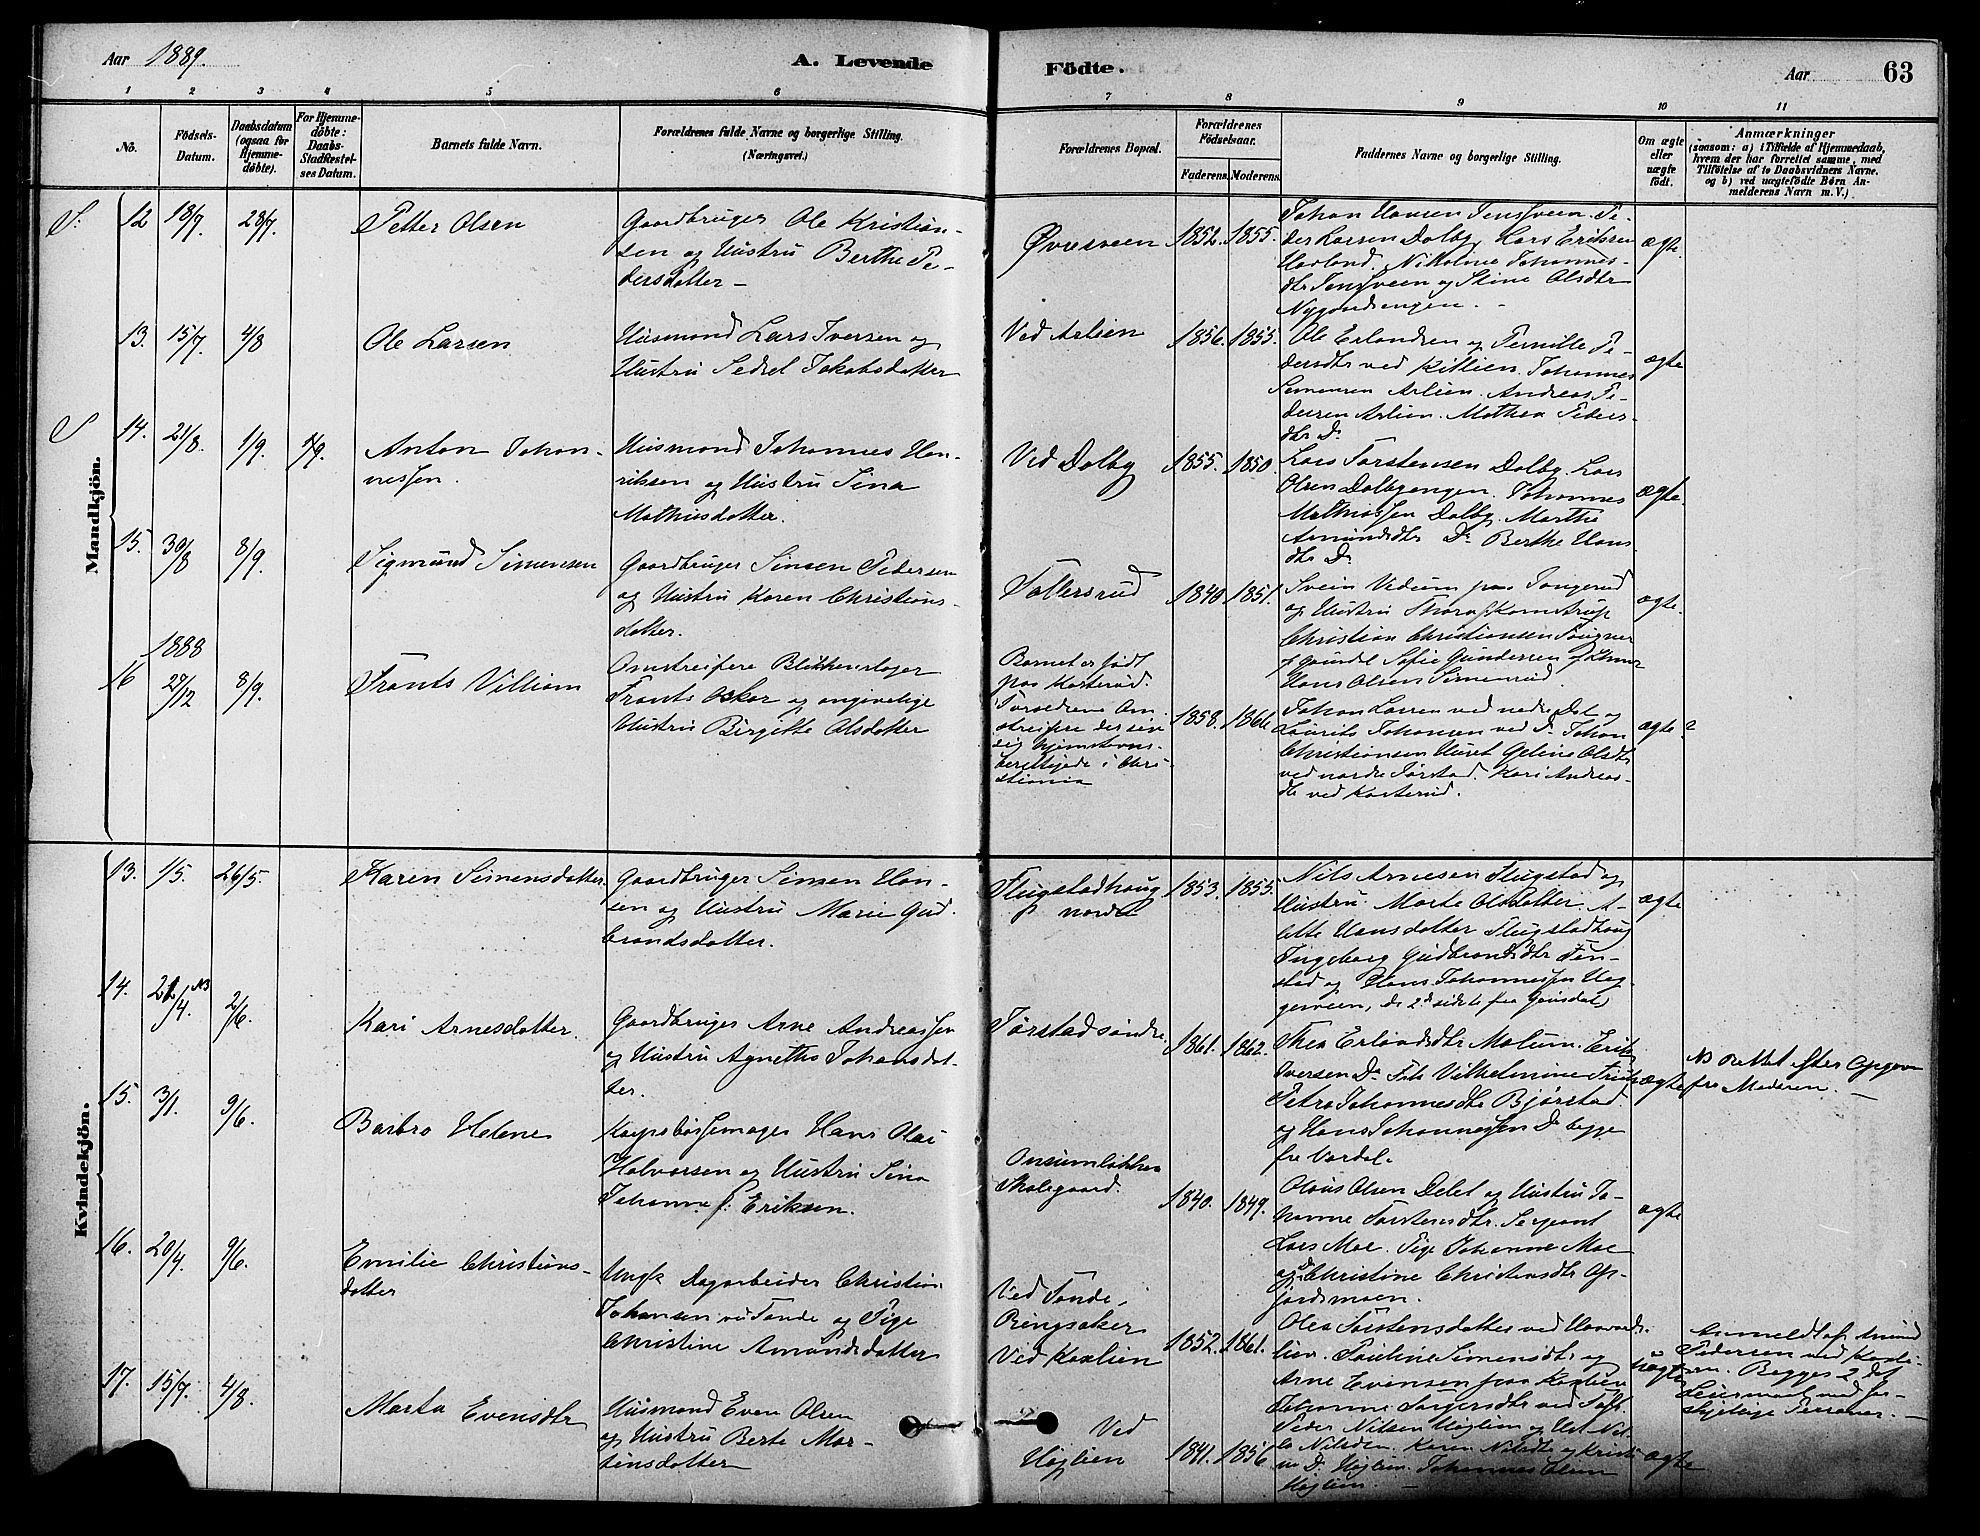 Aar 1889.
A. Levende Födte.
Aar 63
1 2 3 4 5 6 7 8 9 10 11
No.
Födsels-Datum.
Daabsdatum (ogsaa for Hjemme-døbte).
For Hjemme-døbte: Daabs-Stadfæstel-ses Datum.
Barnets fulde Navn.
Forældrenes fulde Navne og borgerlige Stilling.
(Næringsvei.)
Forældrenes Bopæl.
Forældrenes Födselsaar.
Faderens. Moderens.
Faddernes Navne og borgerlige Stilling.
Om ægte eller uægte født.
Anmærkninger
(saasom: a) i Tilfælde af Hjemmedaab,
hvem der har forrettet samme, med
Tilføielse af to Daabsvidners Navne.
og b) ved uægtefødte Børn An-
melderens Navn m. V.).
Mandkjön.
S. 12 18/7 28/7
Petter Olsen
Gaardbruger Ole Kristian-
sen og Hustru Berthe Pe-
dersdatter —
Øvresveen
1852. 1855.
Johan Hansen Jensveen. Pe-
der Larsen Dolby, Lars Eriksen
Havland. Nikoline Johannes-
dtr Jensveen og Stine Olsdtr
Nygardsengen. -
ægte.
13. 15/7 4/8
Ole Larsen
Husmand Lars Iversen og
Hustru Sedsel Jakobsdatter
Ved Arlien
1856. 1855.
Ole Erlandsen og Pernille Pe-
dersdtr ved Killien. Johannes
Simensen Arlien. Andreas Pe-
dersen Arlien. Mathea Peders-
dtr Do
ægte
S 14. 21/8. 1/9. 1/9.
Anton Johan-
nessen.
Husmand Johannes Hen-
riksen og Hustru Sina
Mathiasdatter.
Ved Dolby
1855. 1850.
Lars Torstensen Dolby. Lars
Olsen Dolbyengen. Johannes
Mathiassen Dolby. Marthe
Amundsdtr Do Berthe Hans-
dtr Do
ægte
15. 30/8 8/9.
Sigmund Simensen
Gaardbruger Simen Pedersen
og Hustru Karen Christians-
datter.
Tollersrud
1840 1851.
Svein Vedum paa
og Hustru Thora
Christian Christiansen
Sofie Gundersen
Hans Olsen Simenrud.
ægte.
16 1888 29/12 8/9.
Frants Villiam
Omstreifere Blikkenslager
Frants Oskar og angivelige
Hustru Birgitte Olsdatter
Barnet er født
paa Kasterud.
Forældrene Om-
streifere der sige
sig hjemstavns-
berettigede i Chri-
stiania
1858. 1866.
Johan Larsen ved nedre Det og
Laurits Johansen ved Do Johan
Christiansen Huset Geline Olsdtr
ved nordre Jørstad. Kari Andreas-
dtr ved Kasterud.
ægte?
Kvindekjön.
13. 1/5. 26/5.
Karen Simensdatter.
Gaardbruger Simen Han-
sen og Hustru Marie Gud-
brandsdatter.
Flugstadhaug
nordre
1853. 1855.
Nils Arnesen Flugstad og
Hustru Marte Olsdatter. A-
lette Hansdatter Flugstadhaug
Ingeborg Gudbrandsdtr
stad og Hans Johannessen Hag-
gerveen, de 2de sidste fra Gausdal
ægte
14. 21/4. NB 2/6.
Kari Arnesdatter.
Gaardbruger Arne Andreassen
og Hustru Agnethe Johansdat-
ter.
Jørstad søndre.
1861. 1862.
Thea Erlandsdtr Molum. Erik
Iversen Do Frk Vilhelmine
Petra Johannesdtr Bjørstad
og Hans Johannessen Do begge
fra Vardal.
ægte
NB Rettet efter Opgave
fra Moderen. —
15. 3/1. 9/6.
Barbro Helene
Korpsbøssemager Hans Olai
Halvorsen og Hustru Sina
Johanne f. Eriksen.
Onsumløkken
Skolegaard.
1840. 1849.
Olaus Olsen Delet og Hustru Jo-
hanne Torstensdtr. Sergeant
Lars Moe. Pige Johanne Moe
og Christine Christensdtr
moen.
ægte
16. 20/4. 9/6.
Emilie Christians-
datter
Ungk Dagarbeider Christian
Johansen ved Tande og Pige
Christine Amundsdatter
Ved Tande,
Ringsaker
Ved Kaslien
1852. 1861.
Olea Torstensdatter ved
lien. Pauline Simensdtr og
Arne Evensen paa Kaslien
Johanne
uægte
Anmeldt af Amund
Pedersen ved Kasli-
en. Begges 2det
Leiermaal med for-
skjellige Personer. —
17. 15/7. 4/8.
Marta Evensdtr
Husmand Even Olsen
og Hustru Berte Mar-
tinsdatter
Ved
Højlien
1841. 1856.
Peder Nilsen Højlien og
Karen Nilsdtr og
Do Højlien. Johannes Olsen
Højlien. —
ægte